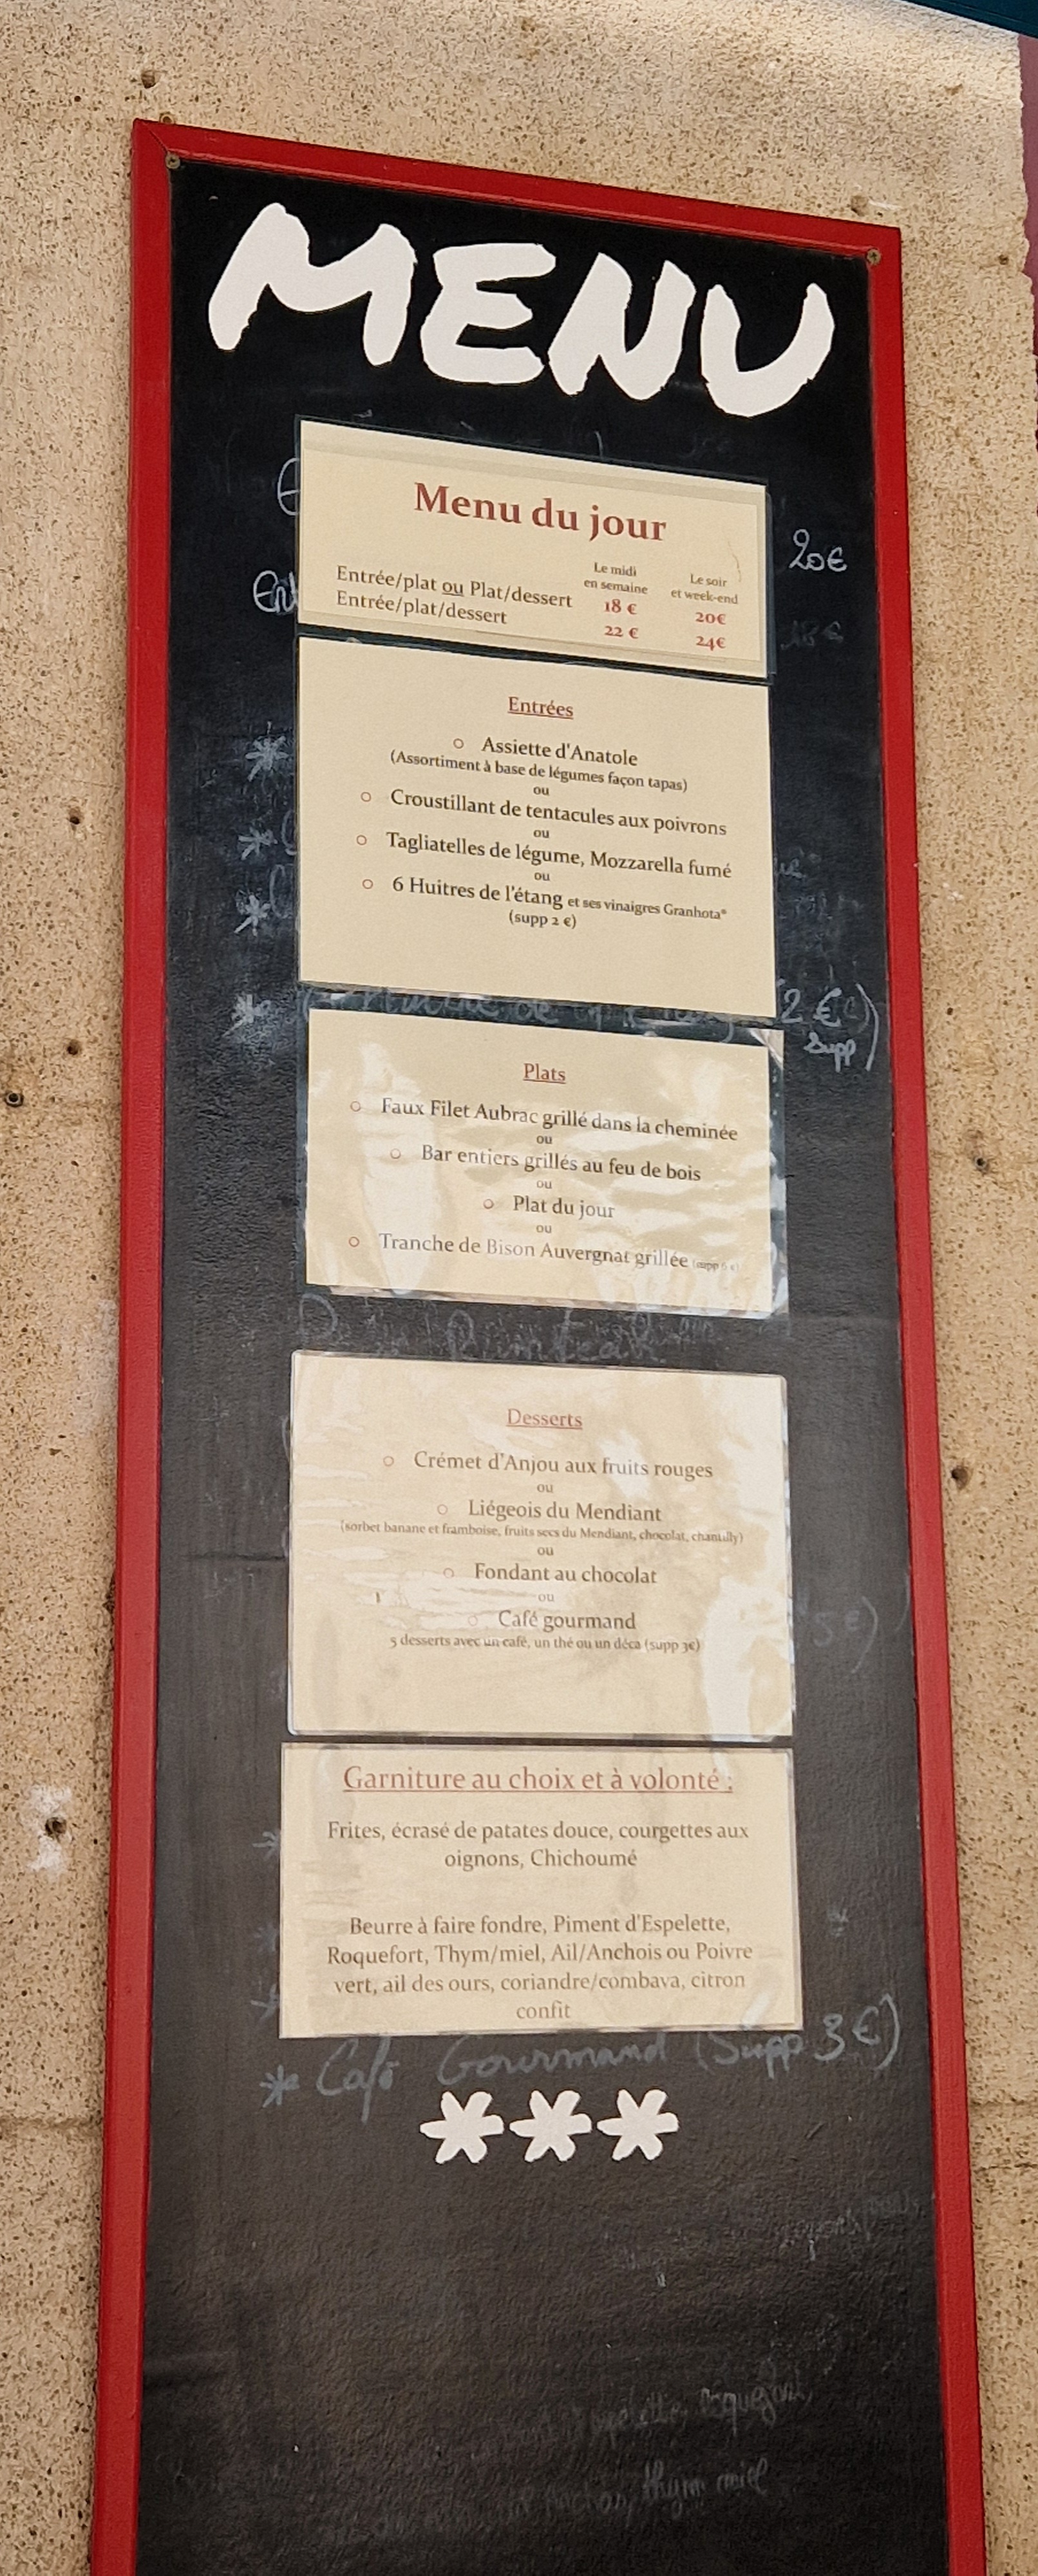 MENU
Menu du jour
Le midi
en semaine
Le soir
et week-end
Entrée/plat ou Plat/dessert 18 € 20€
Entrée/plat/dessert 22 € 24€
20€
Entrées
Assiette d'Anatole
(Assortiment à base de légumes façon tapas)
ou
Croustillant de tentacules aux poivrons
ou
Tagliatelles de légume, Mozzarella fumé
ou
6 Huitres de l'étang et ses vinaigres Granhota®
(supp 2 €)
(2 €)
Supp
Plats
Faux Filet Aubrac grillé dans la cheminée
ou
Bar entiers grillés au feu de bois
ou
Plat du jour
ou
Tranche de Bison Auvergnat grillée (supp 6 €)
Desserts
Crémet d'Anjou aux fruits rouges
ou
Liégeois du Mendiant
(sorbet banane et framboise, fruits secs du Mendiant, chocolat, chantilly)
ou
Fondant au chocolat
ou
Café gourmand
5 desserts avec un café, un thé ou un déca (supp 3€)
Garniture au choix et à volonté :
Frites, écrasé de patates douce, courgettes aux
oignons, Chichoumé
Beurre à faire fondre, Piment d'Espelette,
Roquefort, Thym/miel, Ail/Anchois ou Poivre
vert, ail des ours, coriandre/combava, citron
confit
* Café Gourmand (Supp 3€)
***
roquefort,
thym miel